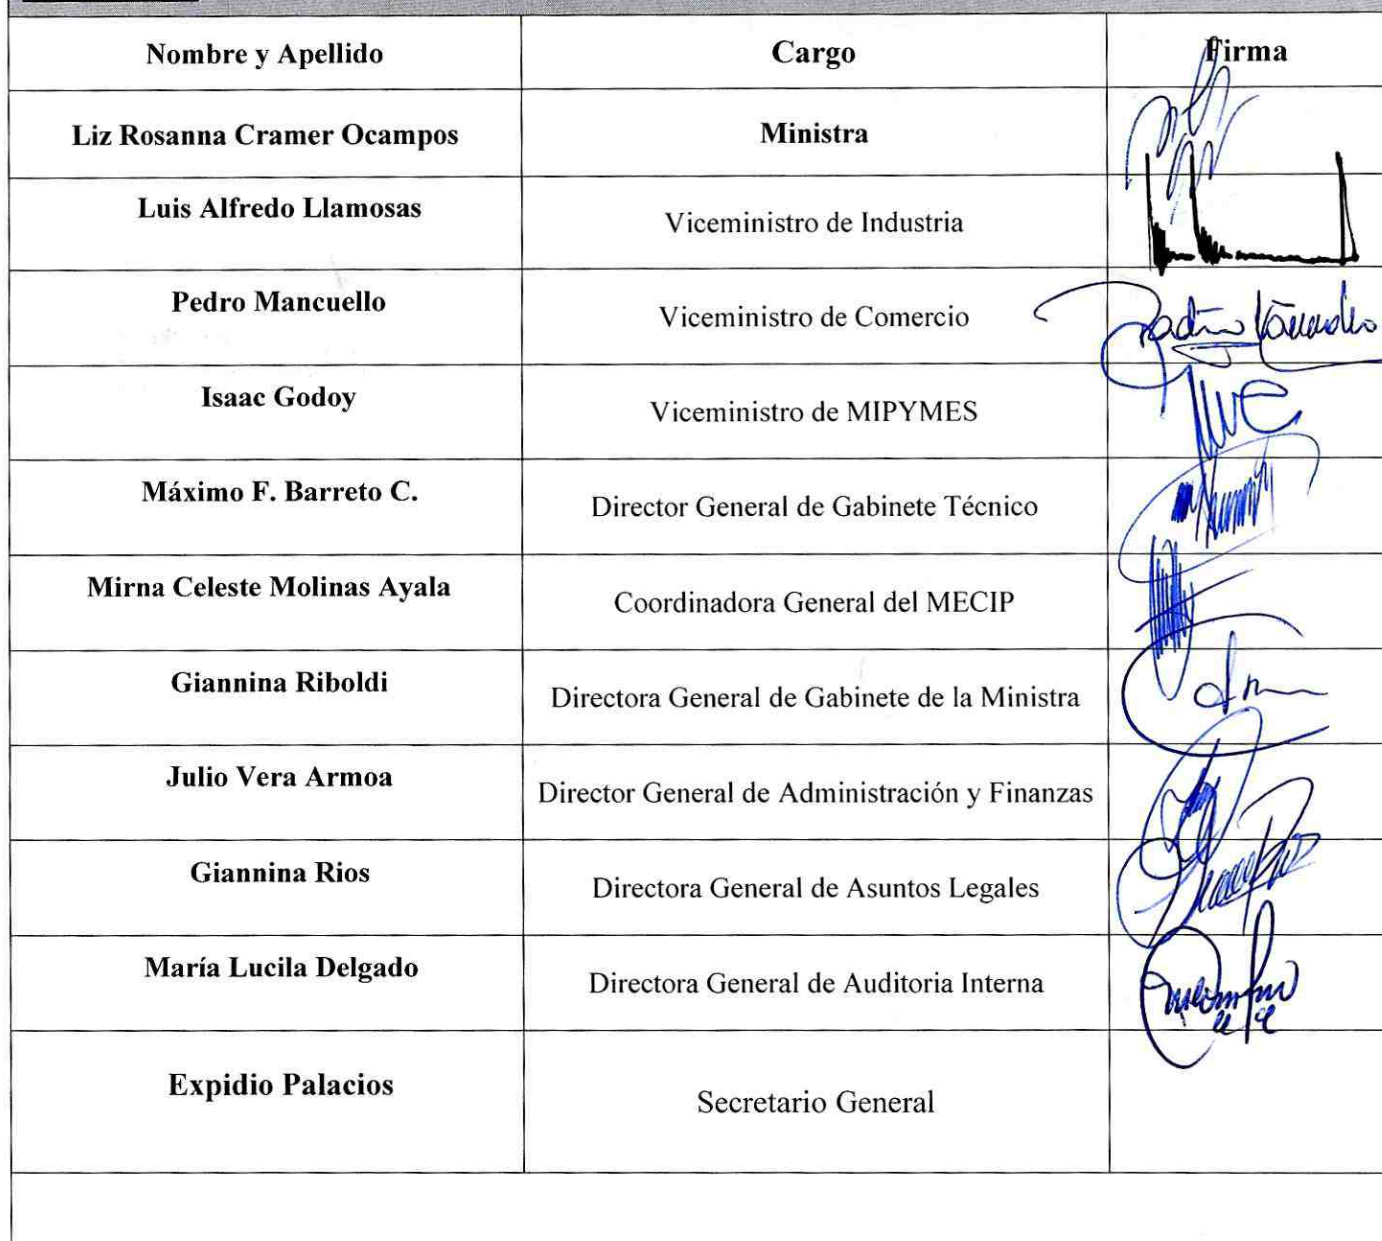 Nombre y Apellido Cargo Firma
Liz Rosanna Cramer Ocampos Ministra
Luis Alfredo Llamosas Viceministro de Industria
Pedro Mancuello Viceministro de Comercio
Isaac Godoy Viceministro de MIPYMES
Máximo F. Barreto C. Director General de Gabinete Técnico
Mirna Celeste Molinas Ayala Coordinadora General del MECIP
Giannina Riboldi Directora General de Gabinete de la Ministra
Julio Vera Armoa Director General de Administración y Finanzas
Giannina Rios Directora General de Asuntos Legales
María Lucila Delgado Directora General de Auditoria Interna
Expidio Palacios Secretario General